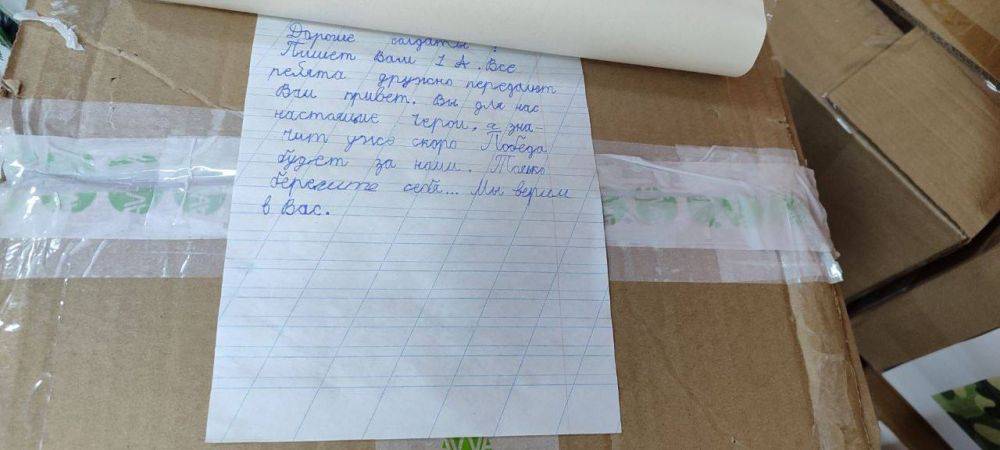 Дорогие солдаты!
Пишет Вам 1 А. Все
ребята дружно передают
Вам привет. Вы для нас
настоящие герои, а зна-
чит уже скоро Победа
будет за нами. Только
берегите себя... Мы верим
в Вас.